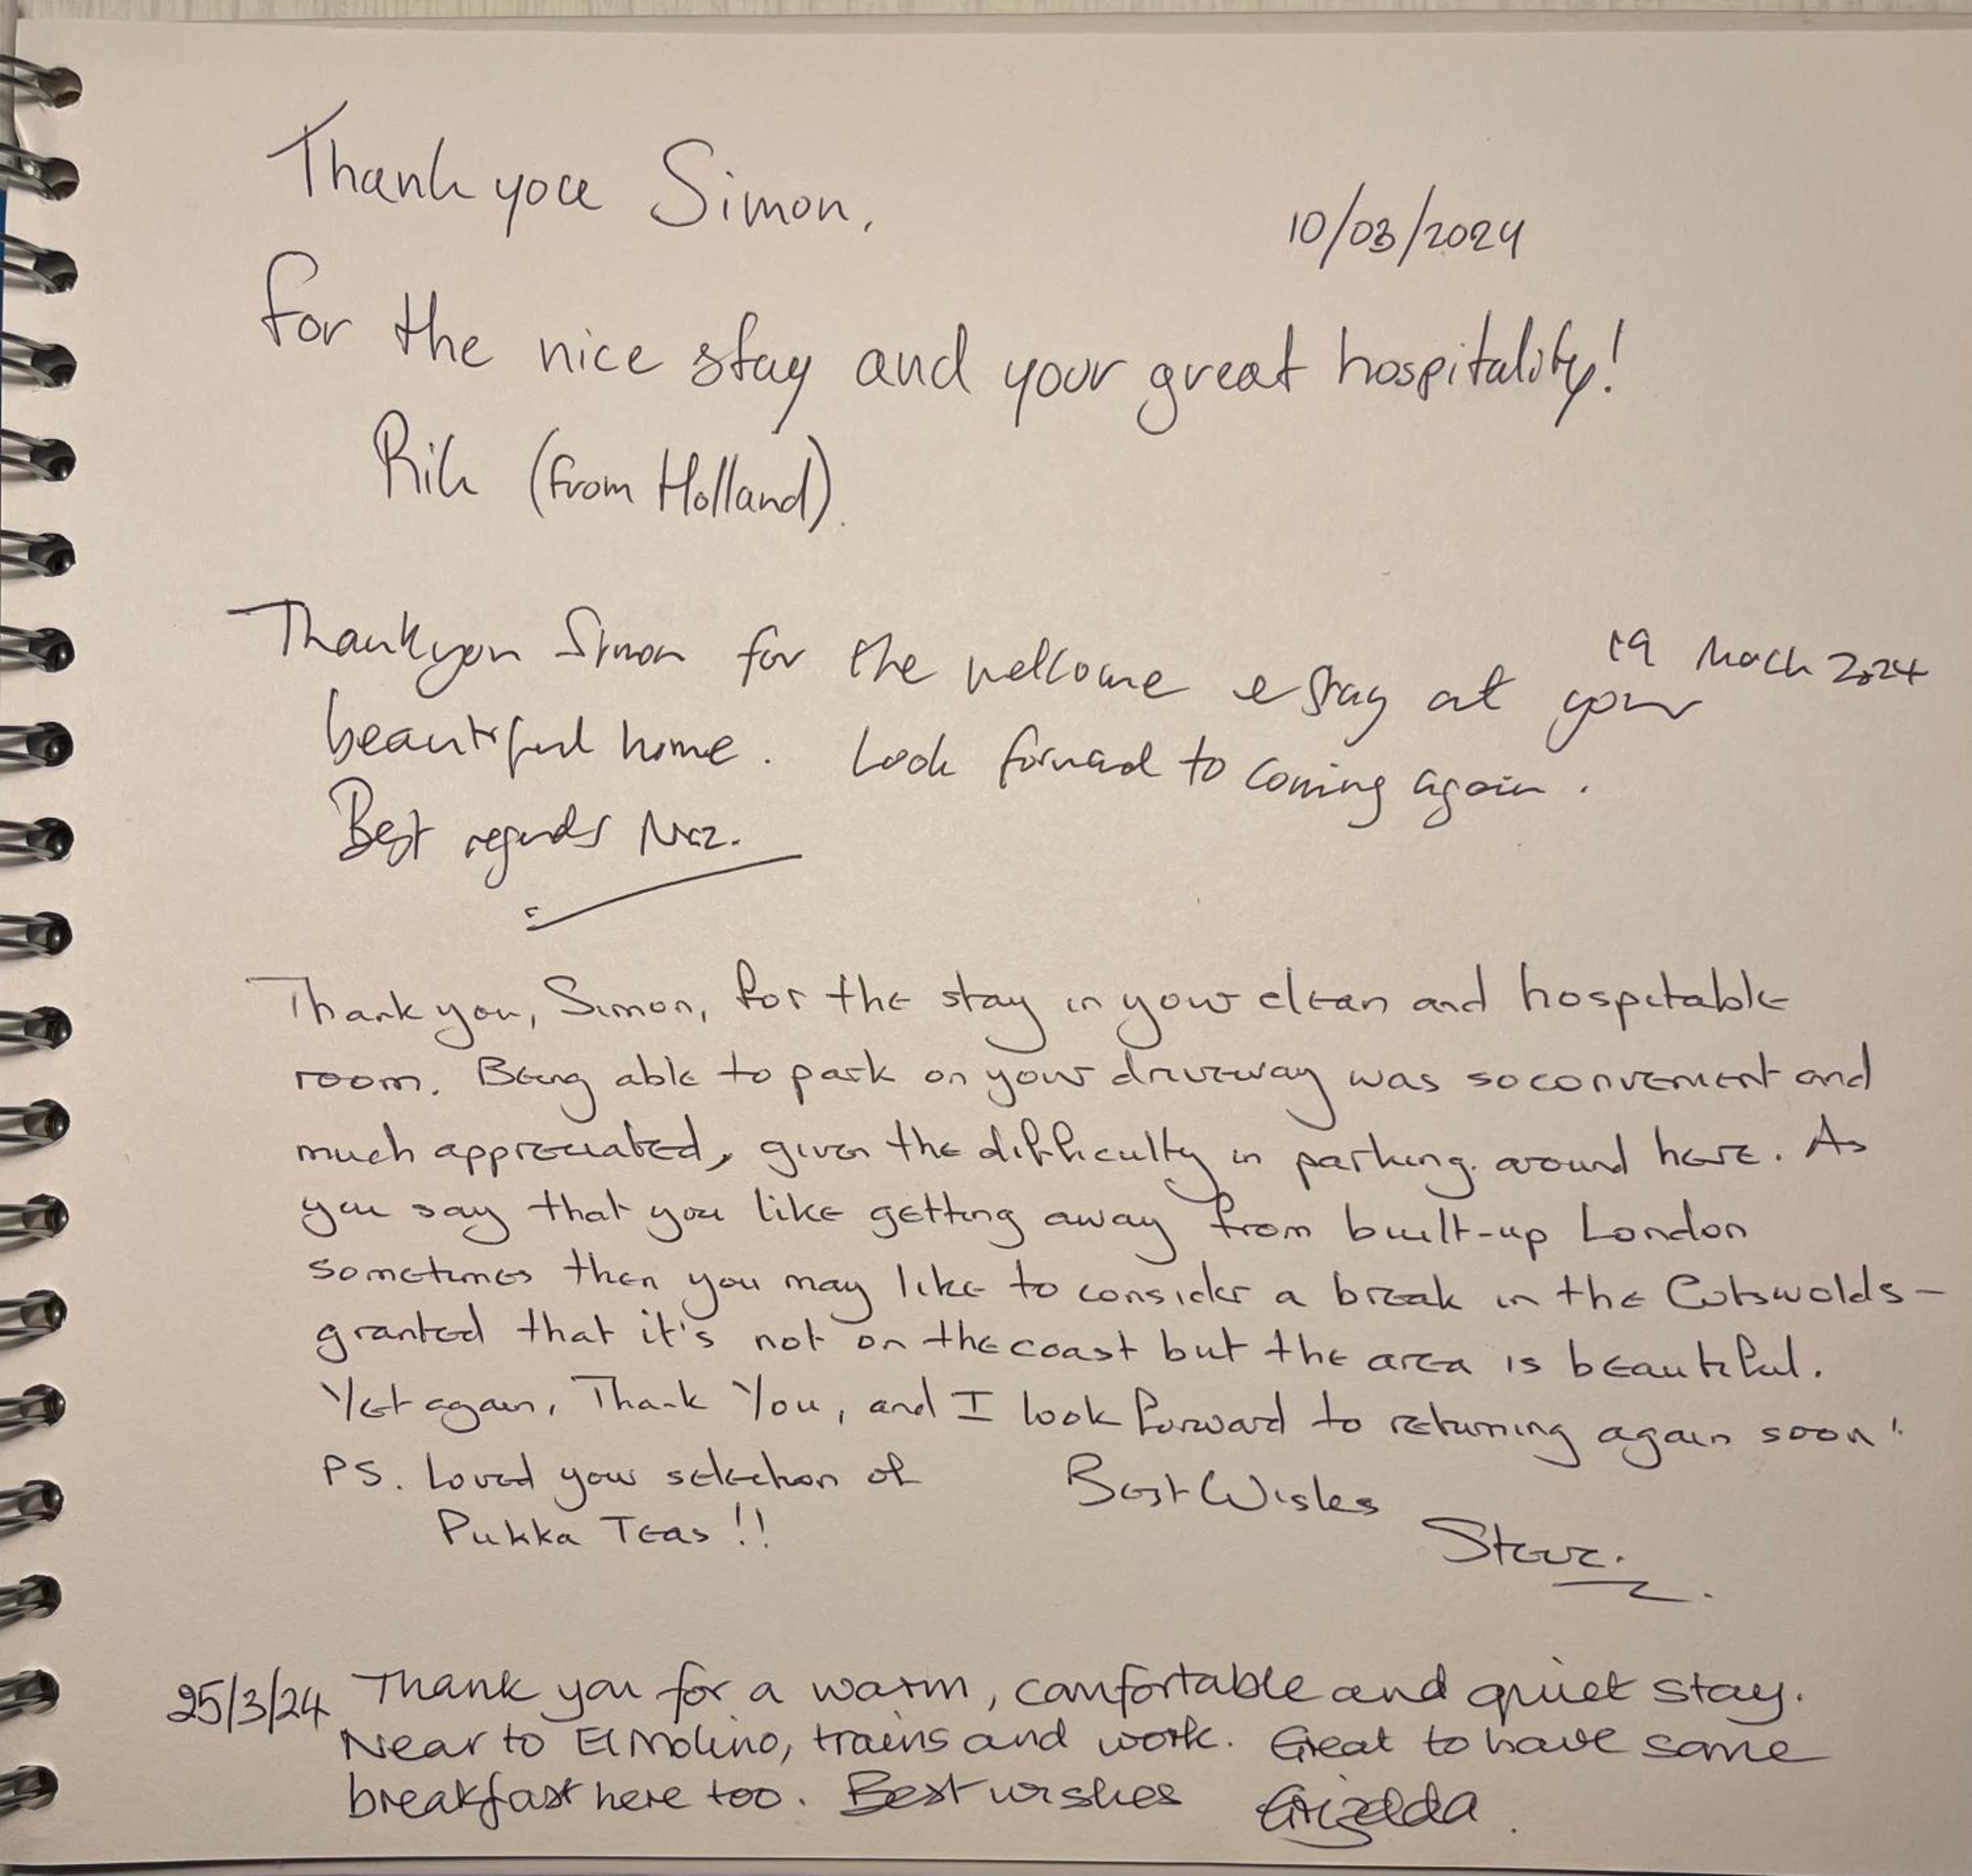 Thank you Simon,
10/03/2024
for the nice stay and your great hospitality!
Rik (from Holland).
19 March 2024
Thankyou Simon for the welcome & stay at your
beautiful home. Look forward to coming again.
Best regards Naz.
Thank you, Simon, for the stay in your clean and hospitable
room. Being able to park on your driveway was so convenient and
much appreciated, given the difficulty in parking around here. As
you say that you like getting away from built-up London
sometimes then you may like to consider a break in the Cotswolds -
granted that it's not on the coast but the area is beautiful.
Yet again, Thank You, and I look forward to returning again soon!
PS. Loved your selection of
Pukka Teas!!
Best Wishes
Steve.
25/3/24 Thank you for a warm, comfortable and quiet stay.
Near to El Molino, trains and work. Great to have some
breakfast here too. Best wishes Grizelda.